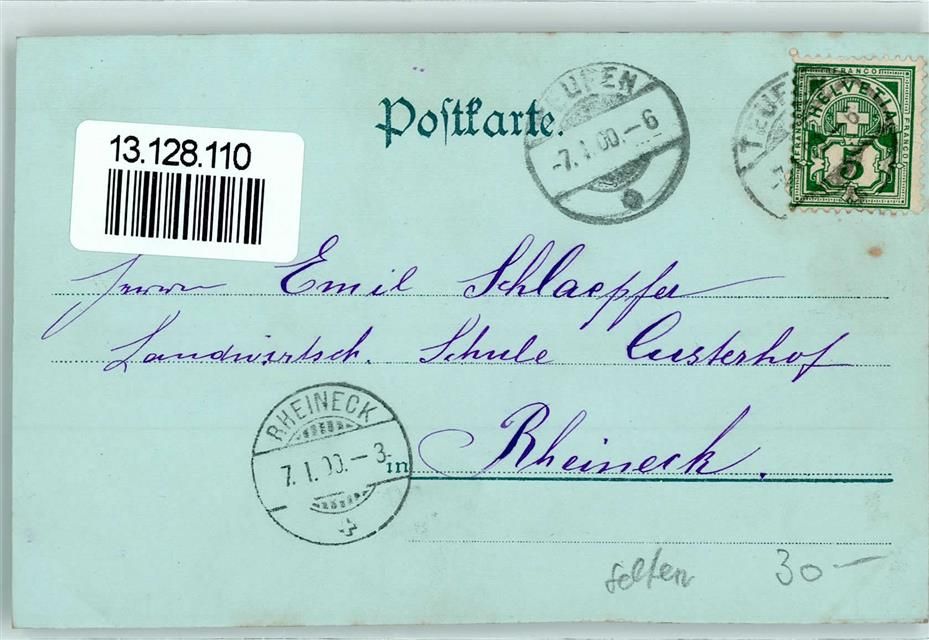 Postkarte.
TEUFEN
-7.I.00.-6
TEUFEN
FRANCO
HELVETIA
FRANCO
FRANCO
5
13.128.110
Herrn Emil Schlaepfer
Landwirtsch. Schule Custerhof
in Rheineck.
RHEINECK
7.I.00.-3.
selten 30-